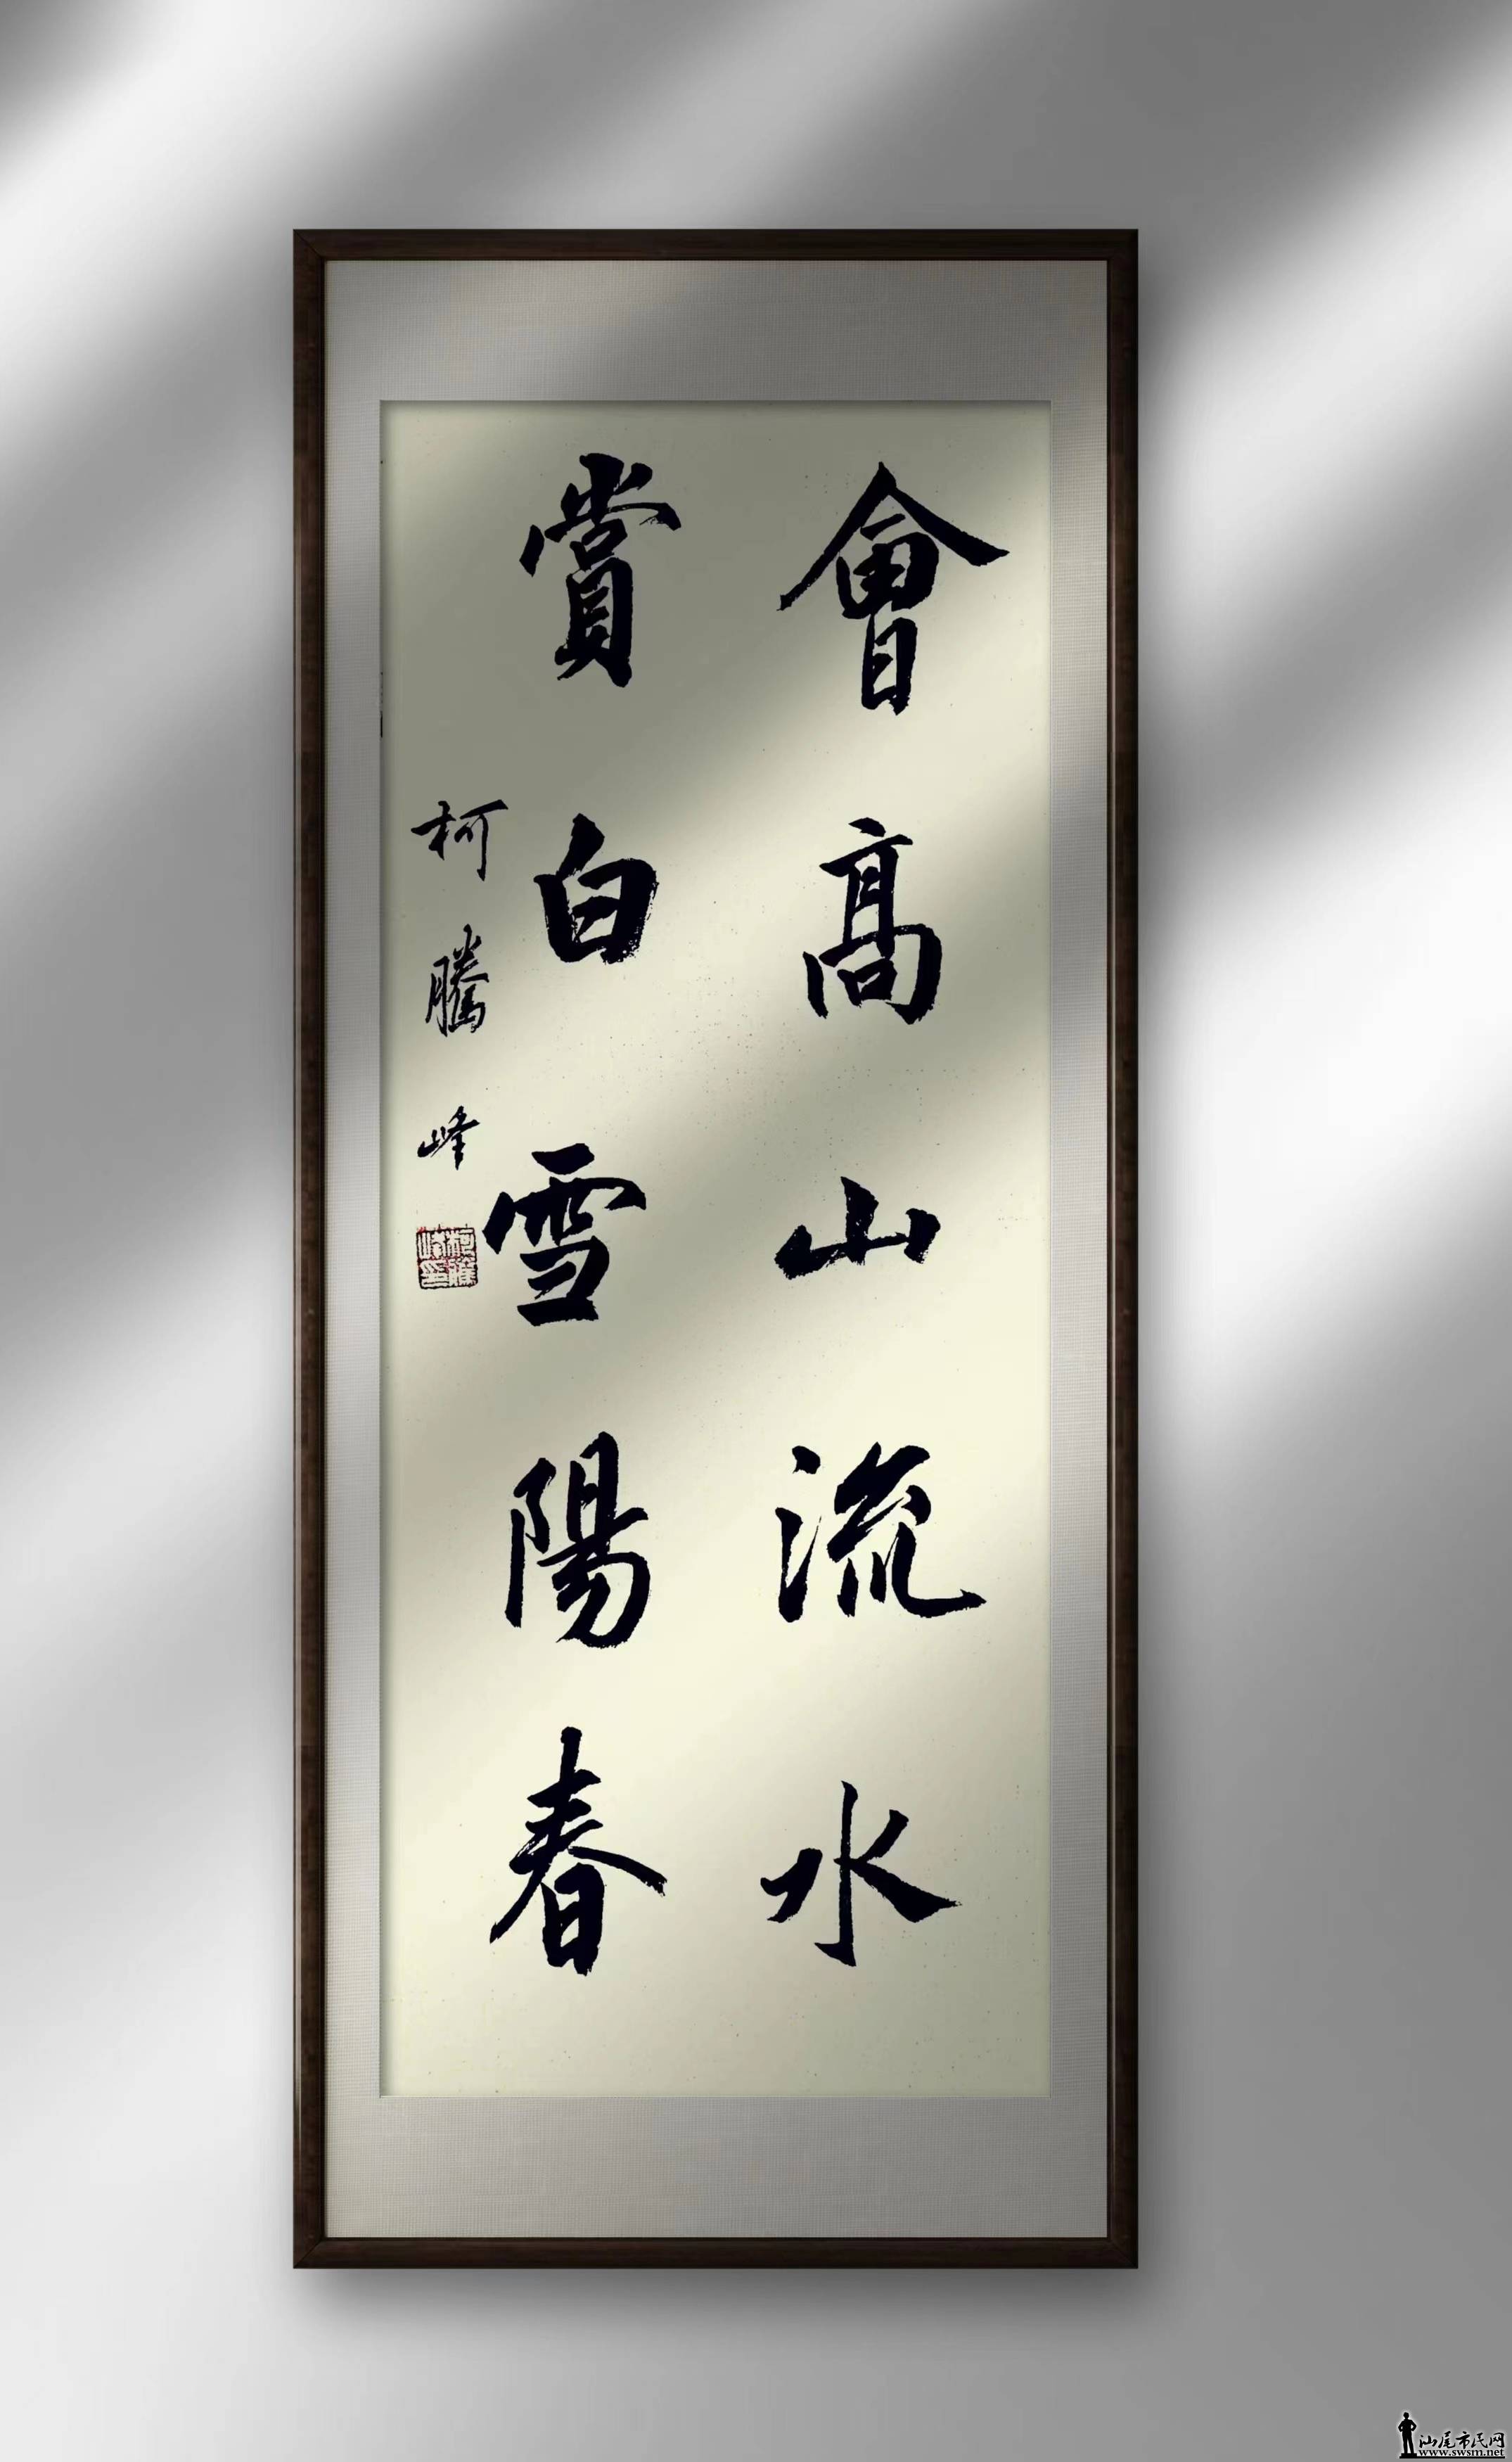 會高山流水
賞白雪陽春
柯騰峰
柯騰峰印
汕尾市民网
www.swsm.net